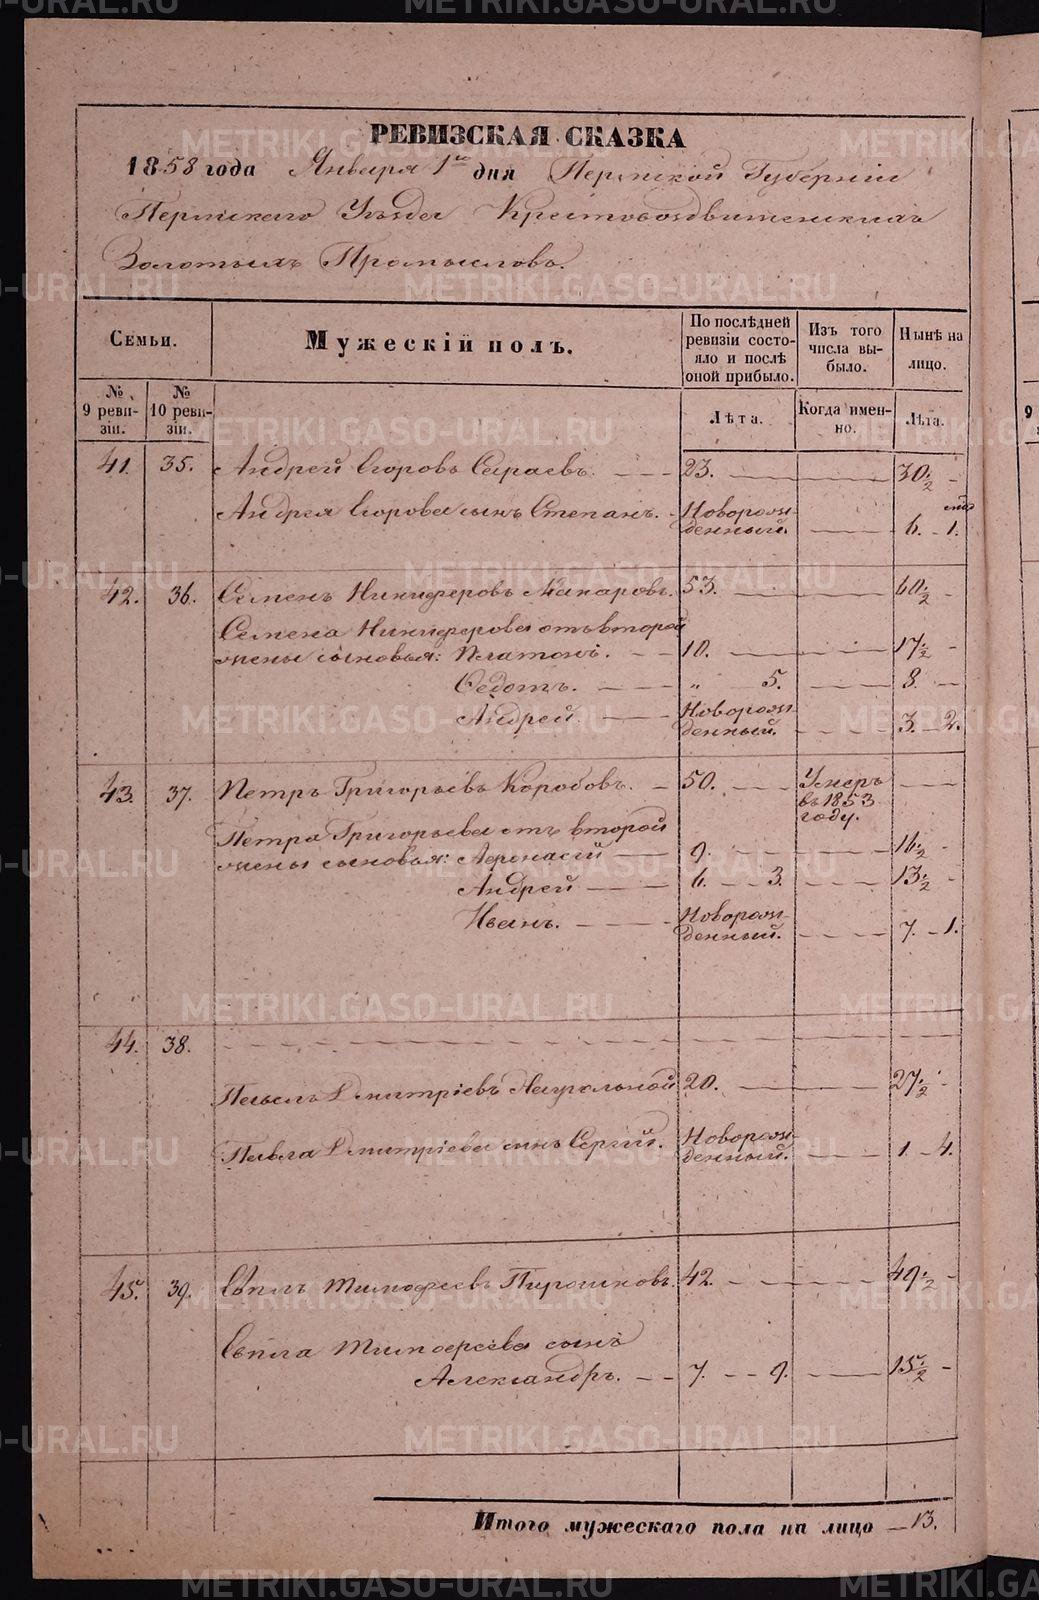 РЕВИЗСКАЯ СКАЗКА
1858 года Января 1го дня Пермской Губернии
Пермскаго Уѣзда Крестовоздвиженскихъ
Золотыхъ Промысловъ.
Семьи.
Мужескій полъ.
По послѣдней ревизіи состояло и послѣ оной прибыло.
Изъ того числа выбыло.
Нынѣ на лицо.
№ 9 ревизіи.
№ 10 ревизіи.
Лѣта.
Когда именно.
Лѣта.
41. 35. Андрей Егоровъ Сараевъ. 23. 30 1/2
Андрея Егорова сынъ Степанъ. Новорожденный. 6. 1.
42. 36. Семенъ Никифоровъ Макаровъ. 53. 60 1/2
Семена Никифорова отъ второй
жены сыновья: Платонъ. 10. 17 1/2
Ѳедотъ. " 5. 8.
Андрей. Новорожденный. 3. 2.
43. 37. Петръ Григорьевъ Коробовъ. 50. Умеръ въ 1853 году.
Петра Григорьева отъ второй
жены сыновья: Афонасій 9. 16 1/2
Андрей 6. 3. 13 1/2
Иванъ. Новорожденный. 7. 1.
44. 38.
Павелъ Дмитріевъ 20. 27 1/2
Павла Дмитріева сынъ Сергій. Новорожденный. 1. 4.
45. 39. Тимофеевъ Пирожковъ. 42. 49 1/2
Тимофеева сынъ
Александръ. 7. 9. 15 1/2
Итого мужескаго пола на лицо 13.
METRIKI.GASO-URAL.RU